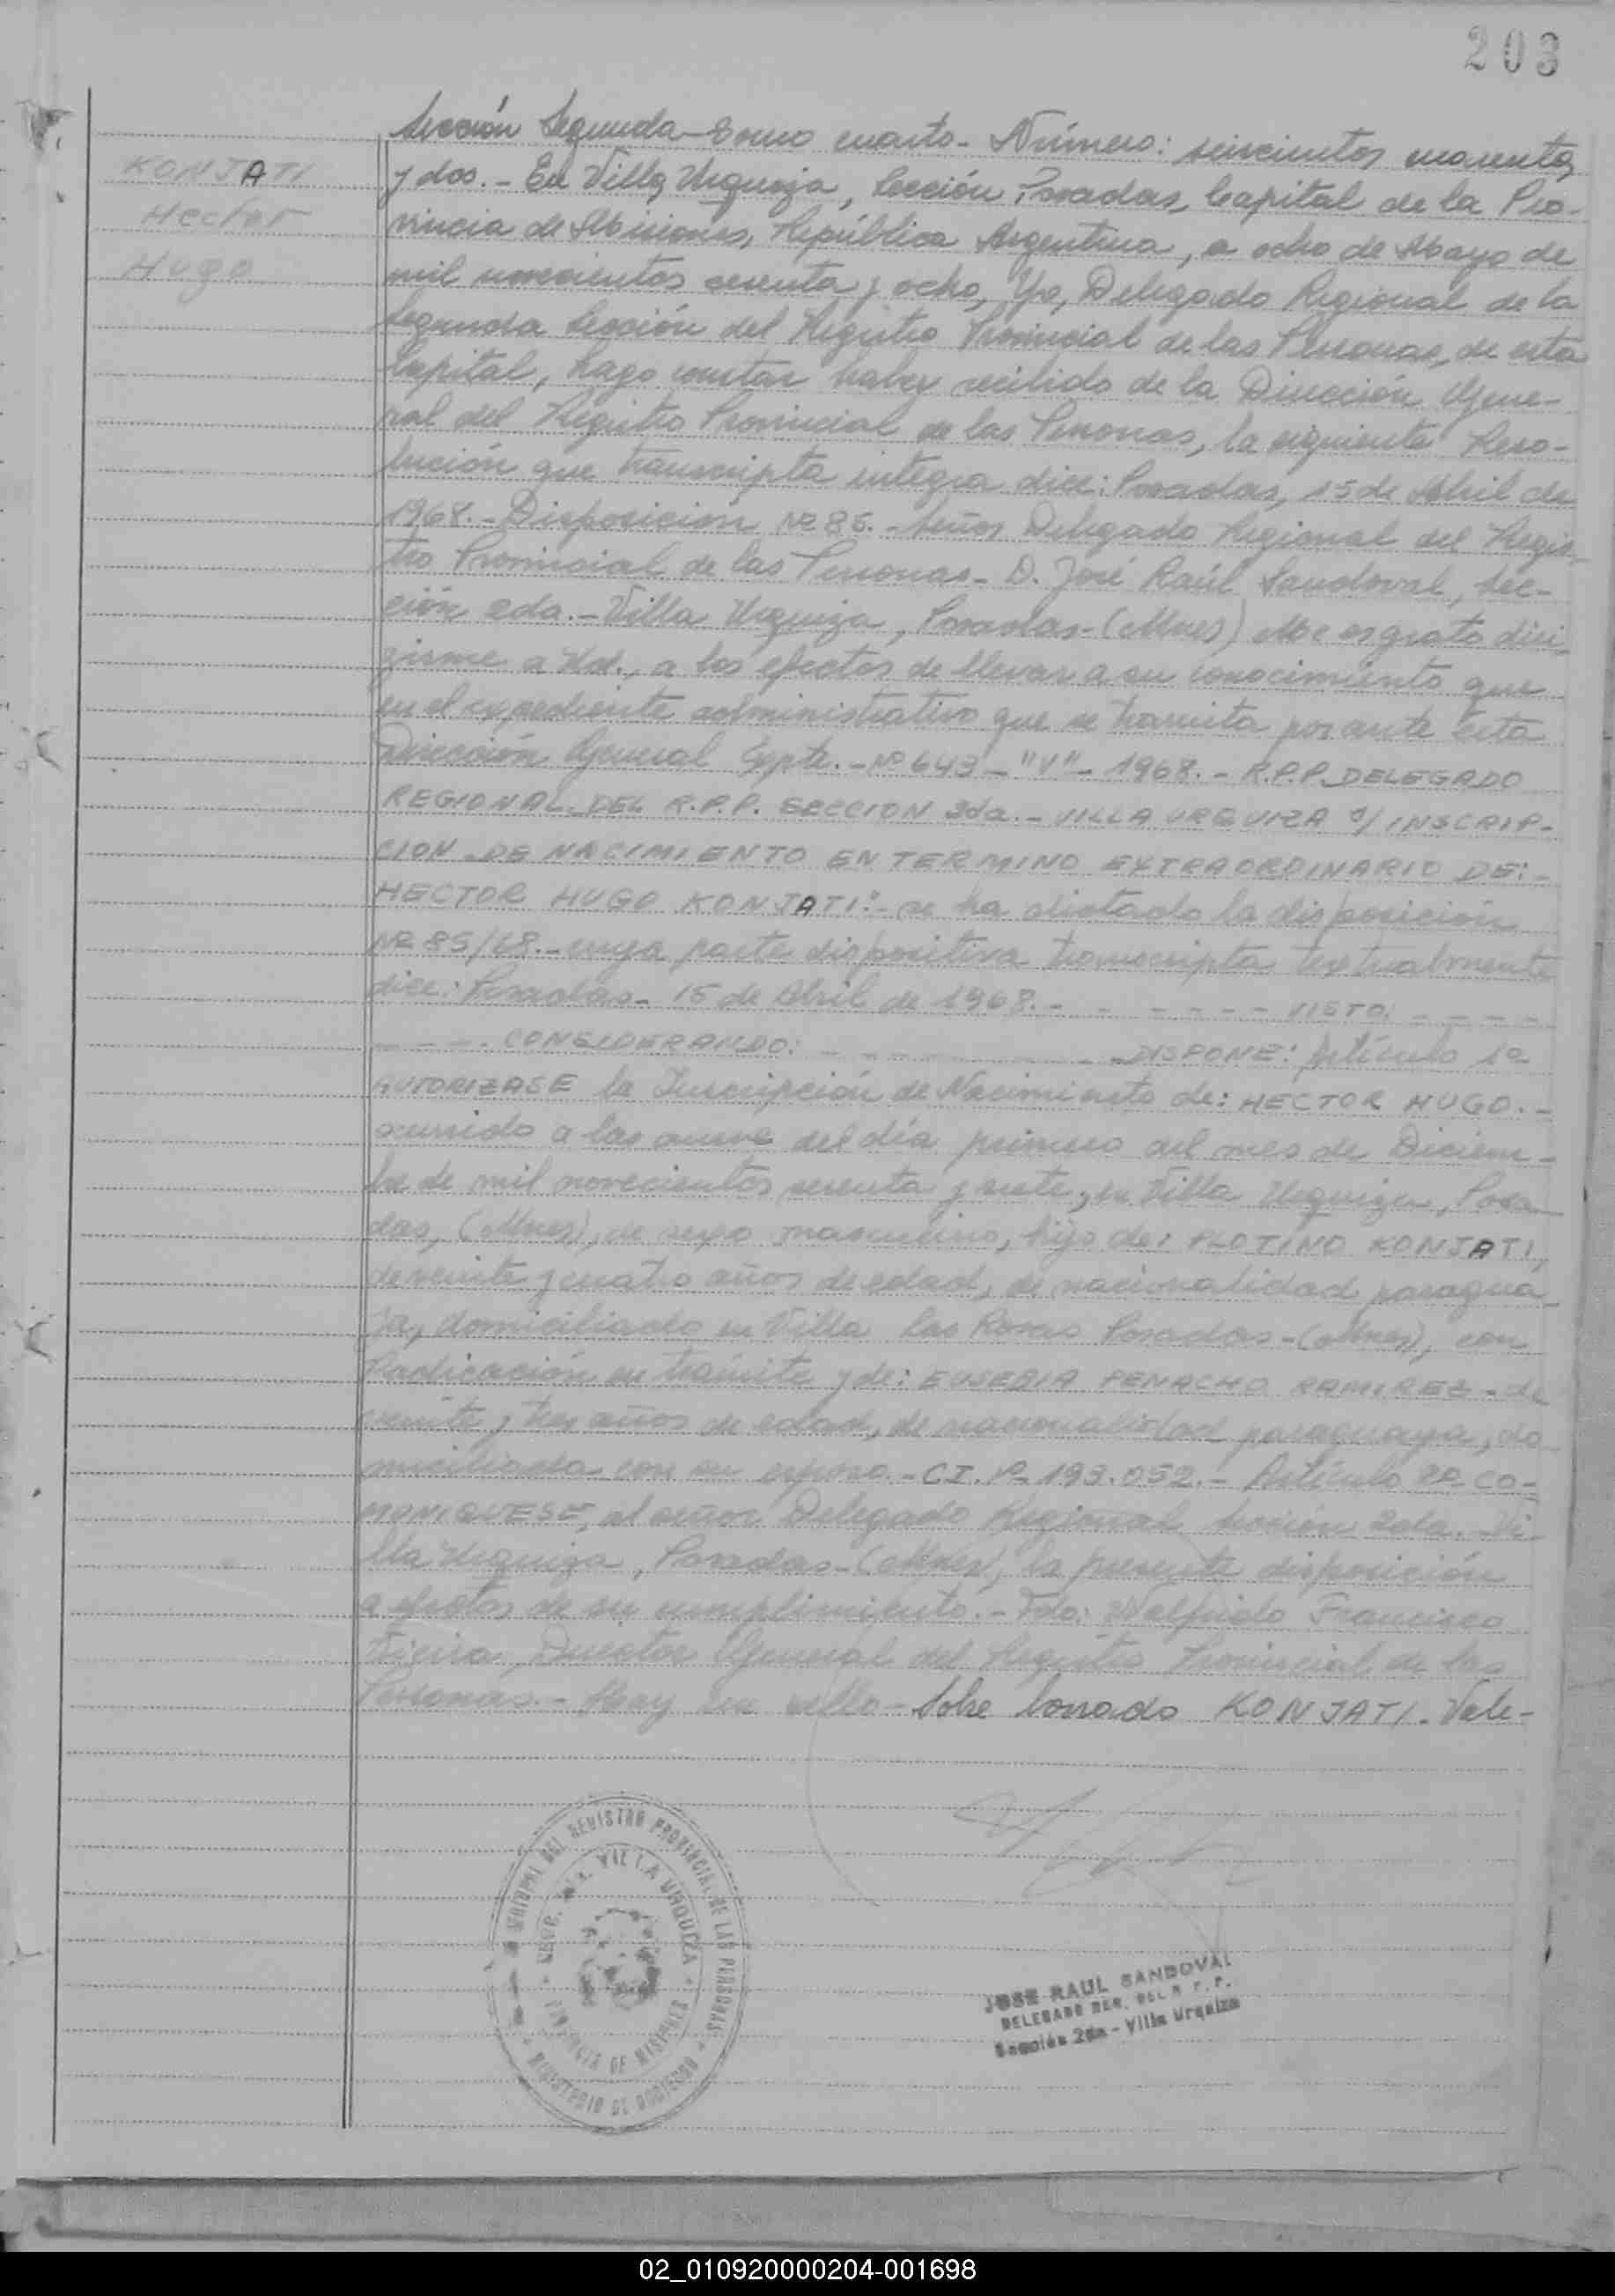 203
KONJATI
Hector
Hugo
Sección Segunda - Tomo cuarto - Número: seiscientos cuarenta
y dos. - En Villa Urquiza, Sección, Posadas, Capital de la Pro-
vincia de Misiones, República Argentina, a ocho de Mayo de
mil novecientos sesenta y ocho, Yo, Delegado Regional de la
Segunda Sección del Registro Provincial de las Personas, de esta
Capital, hago constar haber recibido de la Dirección Gene-
ral del Registro Provincial de las Personas, la siguiente Reso-
lución que transcripta integra dice: Posadas, 15 de Abril de
1968. - Disposición Nº 85. - Señor Delegado Regional del Regis-
tro Provincial de las Personas - D. José Raúl Sandoval, Sec-
ción 2da. - Villa Urquiza, Posadas - (Mnes) Me es grato diri-
girme a Ud., a los efectos de llevar a su conocimiento que
en el expediente administrativo que se tramita por ante esta
Dirección General Expte. - Nº 643 - "V" - 1968. - R.P.P. DELEGADO
REGIONAL DEL R.P.P. SECCION 2da. - VILLA URQUIZA S/ INSCRIP-
CION DE NACIMIENTO EN TERMINO EXTRAORDINARIO DE: -
HECTOR HUGO KONJATI: - se ha dictado la disposición
Nº 85/68. - cuya parte dispositiva transcripta textualmente
dice: Posadas - 15 de Abril de 1968. - - - - - - VISTO: - - - -
- - - - CONSIDERANDO: - - - - - - DISPONE: Artículo 1º
AUTORIZASE la Inscripción de Nacimiento de: HECTOR HUGO. -
ocurrido a las nueve del día primero del mes de Diciem-
bre de mil novecientos sesenta y siete, en Villa Urquiza, Posa-
das, (Mnes), de sexo masculino, hijo de: PLOTINO KONJATI,
de veinte y cuatro años de edad, de nacionalidad paragua-
ya, domiciliado en Villa Las Rosas Posadas - (Mnes), con
Radicación en trámite y de: EUSEBIA PENACHO RAMIREZ - de
veinte y tres años de edad, de nacionalidad paraguaya, do-
miciliada con su esposo. - CI. Nº 193.052. - Artículo 2º CO-
MUNIQUESE, al señor Delegado Regional Sección 2da. Vi-
lla Urquiza, Posadas - (Mnes), la presente disposición
a efectos de su cumplimiento. - Fdo: Walfrido Francisco
Vieira, Director General del Registro Provincial de las
Personas. - Hay un sello - Sobre borrado KONJATI - Vale -
REGISTRO PROVINCIAL DE LAS PERSONAS
VILLA URQUIZA
PROVINCIA DE MISIONES
MINISTERIO DE GOBIERNO
JOSE RAUL SANDOVAL
DELEGADO REG. DEL R. P. P.
Sección 2da - Villa Urquiza
02_010920000204-001698